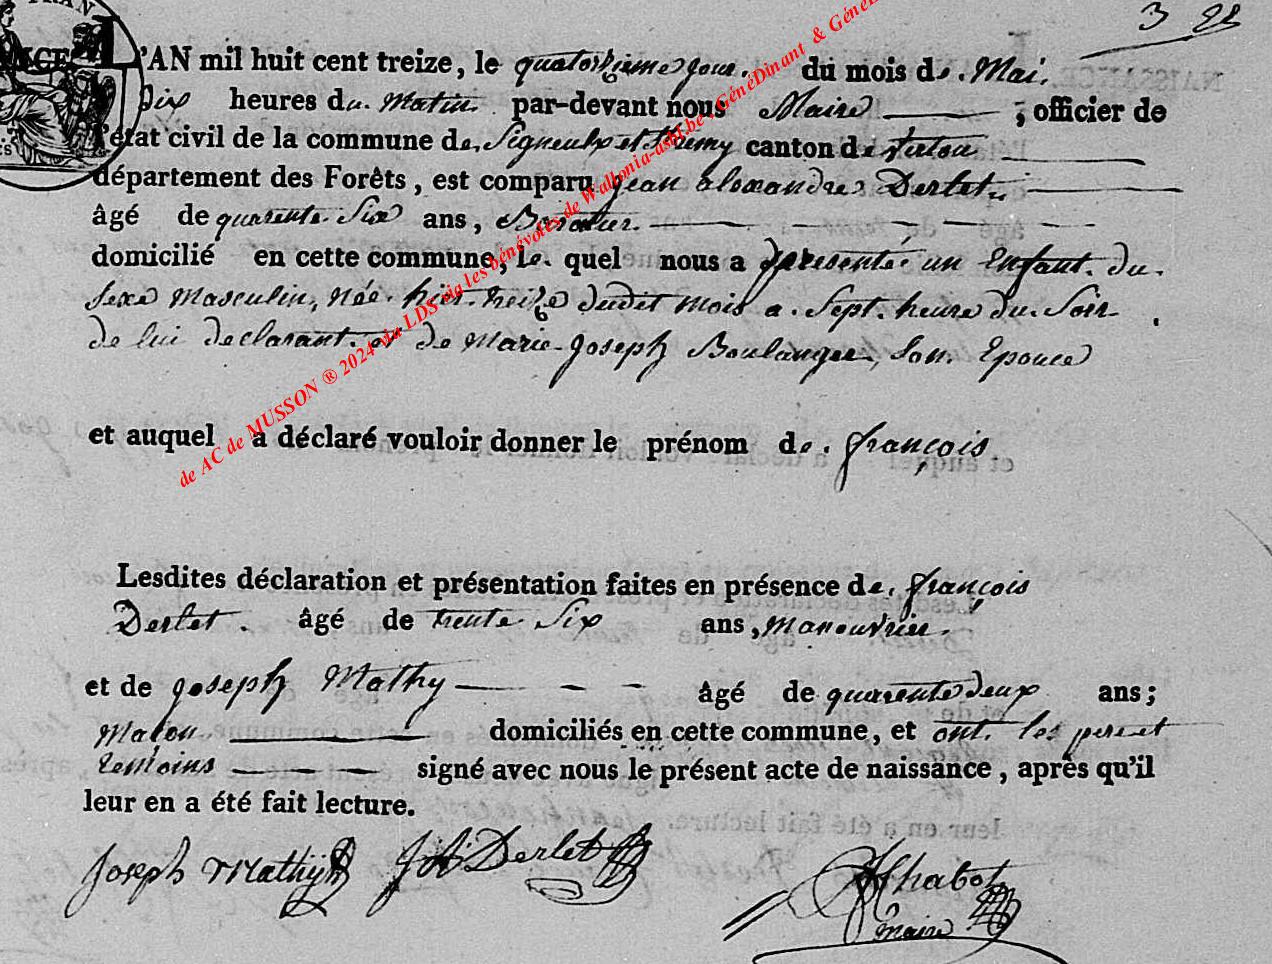 3 22
L'AN mil huit cent treize, le quatorzieme jour. du mois de. Mai.
Dix heures du. Matin. par-devant nous Maire ; officier de
l'état civil de la commune de, Signeulx et canton de Virton
département des Forêts, est comparu Jean alexandre Derlet
âgé de quarente Six ans,
domicilié en cette commune, le. quel nous a presenté un Enfant. du.
Sexe Masculin, née. hier. treize dudit mois a. Sept. heure du. Soir
de lui declarant. et de Marie-Joseph Boulanger, Son. Epouce
et auquel a déclaré vouloir donner le prénom de. françois
Lesdites déclaration et présentation faites en présence de, françois
Derlet. âgé de trente Six ans, Manouvrier.
et de joseph Mathy âgé de quarente deux ans;
Maçon domiciliés en cette commune, et ont. les per et
temoins signé avec nous le présent acte de naissance, après qu'il
leur en a été fait lecture.
Joseph Mathy JA Derlet
Chabot
maire
de AC de MUSSON ® 2024 via LDS via les bénévoles de Wallonia-asbl.be, GénéDinant & Géné